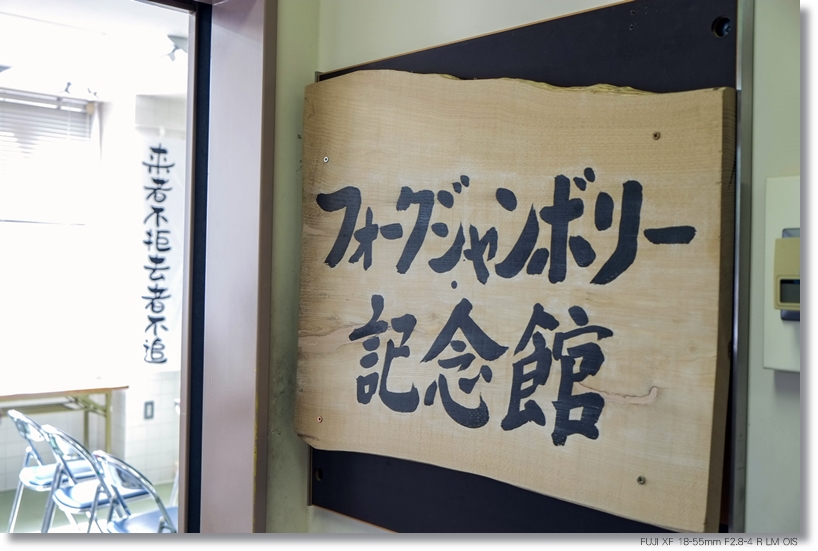 来者不拒去者不追
フォークジャンボリー
記念館
FUJI XF 18-55mm F2.8-4 R LM OIS